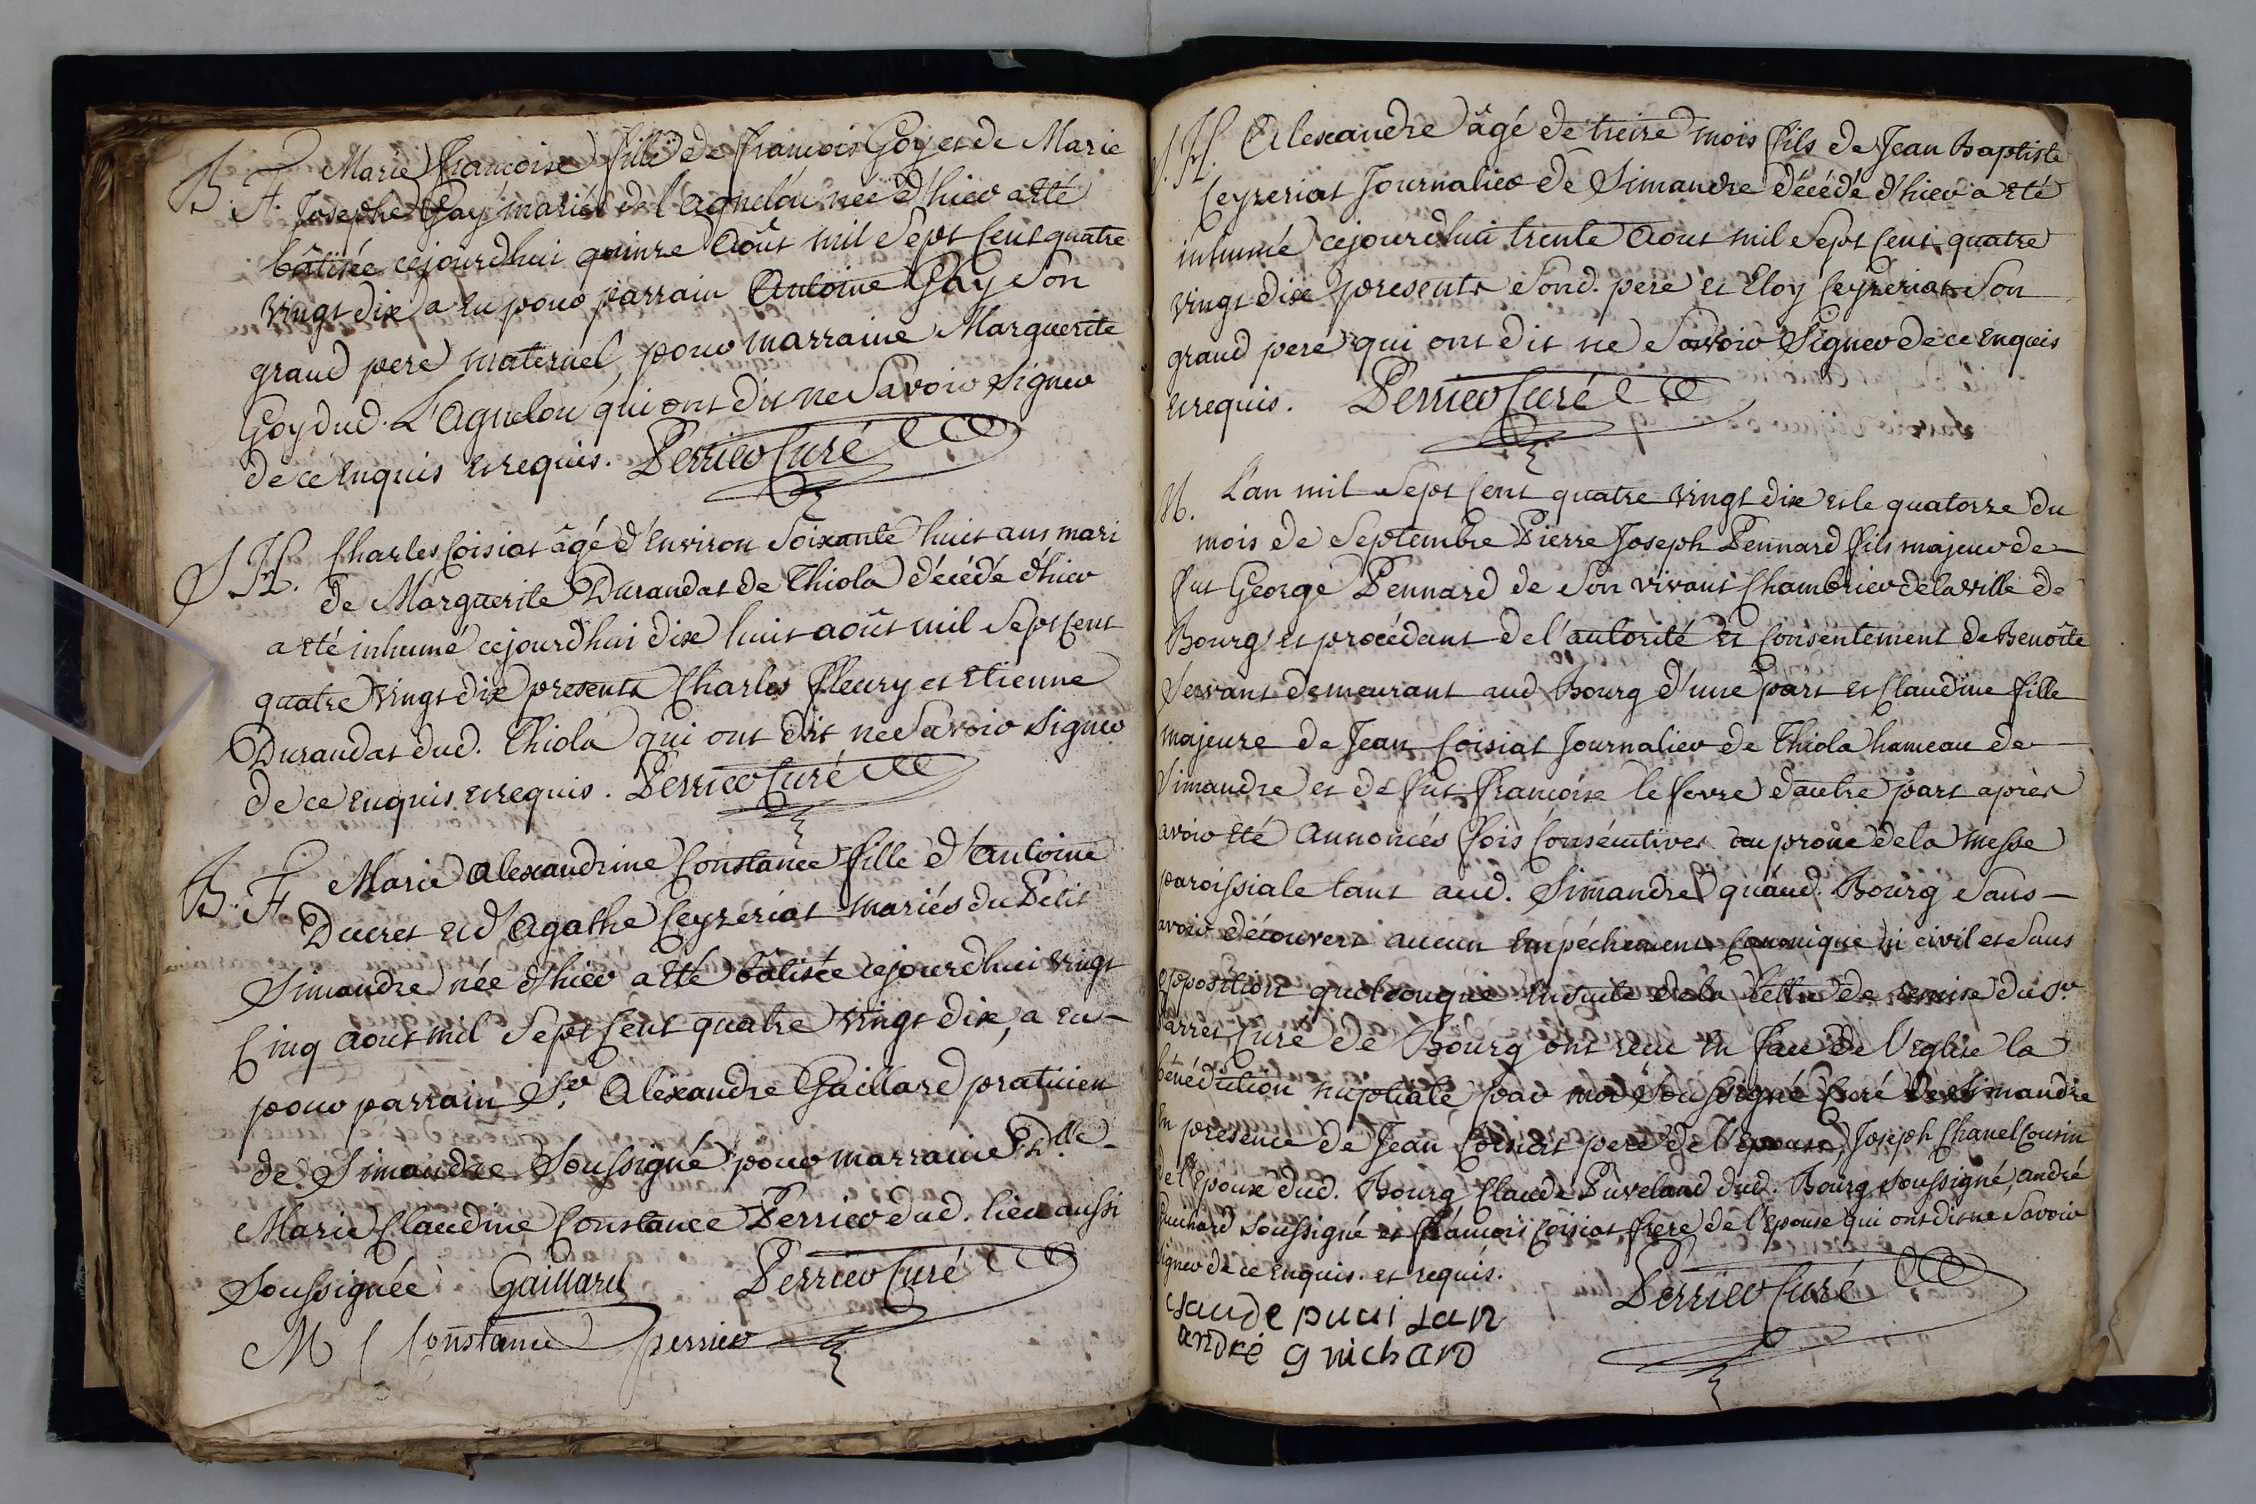 B. F. Marie francoise fille de francois Goy et de Marie
Josephe Gay mariés de l'agnelou née d'hier a été
bâtisée cejourdhui quinze Août mil Sept Cent quatre
vingt dix a eu pour parrain Antoine Gay Son
grand pere maternel, pour marraine Marguerite
Goy dud. L'Agnelou qui ont dit ne Savoir signer
de ce enquis et requis. Perrier Curé
S H. Charles Coisiat âgé d'Environ Soixante huit ans mari
de Marguerite Durandat de Thiola décédé d'hier
a été inhumé cejourd'hui dix huit août mil Sept Cent
quatre vingt dix presents Charles fleury et Etienne
Durandat dud. Thiola qui ont dit ne Savoir signer
de ce enquis et requis. Perrier Curé
B. F. Marie alexandrine Constance fille d'antoine
Ducret et d'agathe Ceyzeriat mariés du Petit
Simandre née d'hier a été bâtisée cejourd'hui vingt
Cinq aout mil Sept Cent quatre vingt dix, a eu
pour parrain Sr. Alexandre Gaillard praticien
de Simandre Soussigné pour marraine Dlle
Marie Claudine Constance Perrier dud. lieu aussi
Soussignée Gaillard Perrier Curé
M C Constance perrier
S. H. Alexandre âgé de treize mois fils de Jean Baptiste
Ceyzeriat Journalier de Simandre décédé d'hier a été
inhumé cejourdhui trente Aout mil Sept Cent quatre
vingt dix presents Sond. pere et Eloy Ceyzeriat Son
grand pere qui ont dit ne Savoir Signer de ce enquis
et requis. Perrier Curé
M. L'an mil Sept Cent quatre vingt dix et le quatorze du
mois de Septembre Pierre Joseph Pennard fils majeur de
fut George Pennard de Son vivant Chambrier de la ville de
Bourg et procédant de l'autorité et Consentement de Benoîte
Servant demeurant aud Bourg d'une part et Claudine fille
majeure de Jean Coisiat Journalier de Thiola hameau de
Simandre et de fut francoise le fevre d'autre part après
avoir été annoncés fois Consécutives au prone de la messe
paroissiale tant aud. Simandre qu'aud. Bourg Sans
avoir découvert aucun Empéchement Canonique ni civil et Sans
opposition quelconque Ensuite de la lettre de remise du Sr.
Parret Curé de Bourg ont reçu en face de l'Eglise la
bénédiction nuptiale par moi Soussigné Curé de Simandre
En presence de Jean Coisiat pere de l'epouse, Joseph Chanel Cousin
de l'Epoux dud. Bourg Claude Puveland dud. Bourg Soussigné, andré
Guichard Soussigné et francois Coisiat frere de l'Epouse qui ont dit ne Savoir
signer de ce enquis. et requis.
Perrier Curé
claude puvi lan
andré guichard